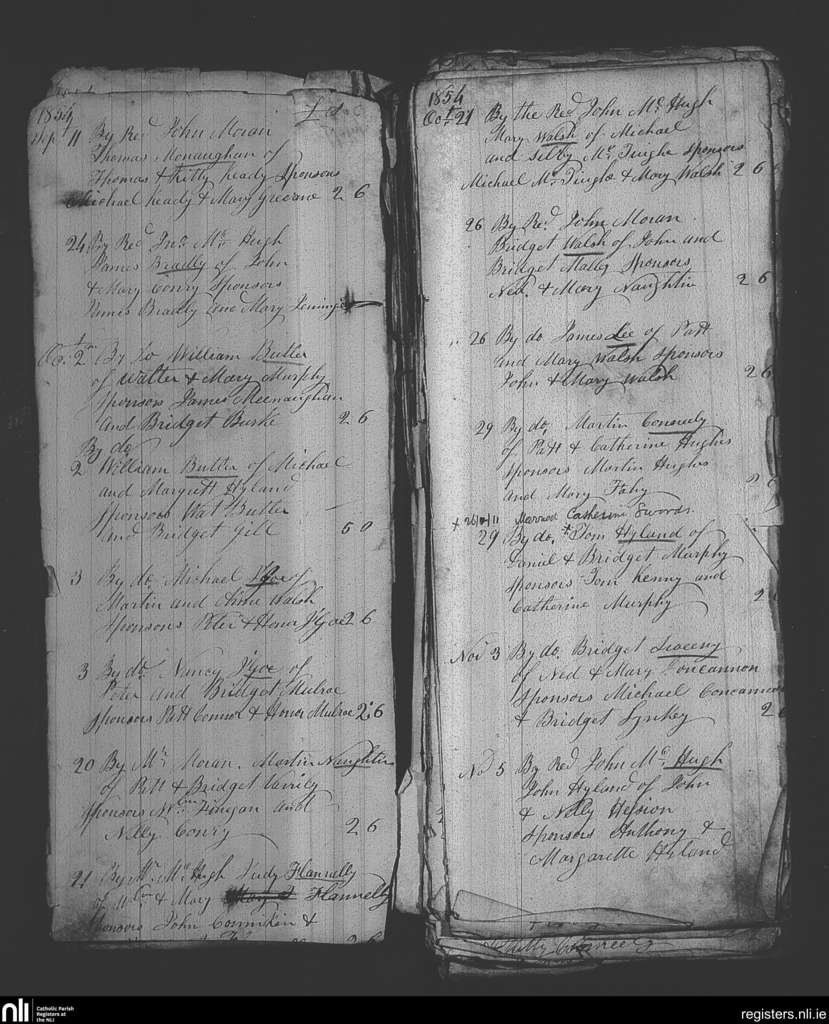 1854
£ s
Sep. 11 By Revd John Moran
Thomas Monaughan of
Thomas & Kitty heady Sponsors
Michael heady & Mary Greevne 2 6
24 By Revd Jno Mc Hugh
James Bradly of John
& Mary Conry Sponsors
James Bradly and Mary Jennings
Oct. 2nd By Do William Butler
of Walter & Mary Murphy
Sponsors James Meenaughan
and Bridget Burke 2 6
By do
2 William Butler of Michael
and Margrett Hyland
Sponsors Wat Butler
and Bridget Gill 5 0
3 By do. Michael Joyce of
Martin and Anne Walsh
Sponsors Peter & Honor Joyce 2 6
3 By do. Nancy Joyce of
Peter and Bridget Mulroe
Sponsors Patt Connor & Honor Mulroe 2 6
20 By Mr Moran. Martin Naughtin
of Patt & Bridget Varrily
Sponsors Wm Finegan and
Nelly Conry 2 6
21 By Mr McHugh Judy Flannelly
of Wm & Mary Flannelly
Sponsors John &
2 6
1854
Oct 21 By the Revd John Mc Hugh
Mary Walsh of Michael
and Sibby Mc Tuighe Sponsors
Michael Mc Tinghe & Mary Walsh 2 6
26 By Revd John Moran.
Bridget Walsh of John and
Bridget Mally Sponsors
Ned. & Mary Naughtin 2 6
26 By do James Lee of Patt
and Mary Walsh Sponsors
John & Mary Walsh 2 6
29 By do, Martin Conneely
of Patt & Catherine Hughes
Sponsors Martin Hughes
and Mary Fahy 2 6
Married Catherine Swords.
29 By do, Tom Hyland of
Danial & Bridget Murphy
Sponsors Tom Kenny and
Catherine Murphy 2
Nov 3 By do. Bridget
of Ned & Mary Concannon
Sponsors Michael Concannon
& Bridget Lynkey 2
Nov 5 By Revd John Mc Hugh
John Hyland of John
& Nelly Hession
Sponsors Anthony &
Margarette Hyland
Kitty
nli Catholic Parish
Registers at
the NLI
registers.nli.ie